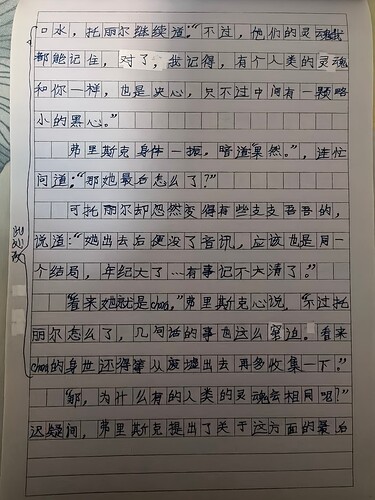 口水，托丽尔继续道："不过，他们的灵魂我
都能记住，对了，我记得，有个人类的灵魂
和你一样，也是决心，只不过中间有一颗略
小的黑心。"
弗里斯克身体一振，暗道"果然。"，连忙
问道："那她最后怎么了？"
可托丽尔却忽然变得有些支支吾吾的，
说道："她出去后便没了音讯，应该也是同一
个结局，年纪大了…有事记不大清了。"
"看来她就是chara，"弗里斯克心说，"不过托
丽尔怎么了，几句话的事也这么窘迫。看来
chara的身世还得等从废墟出去再多收集一下。"
"那，为什么有的人类的灵魂会相同呢？"
迟疑间，弗里斯克提出了关于这方面的最后